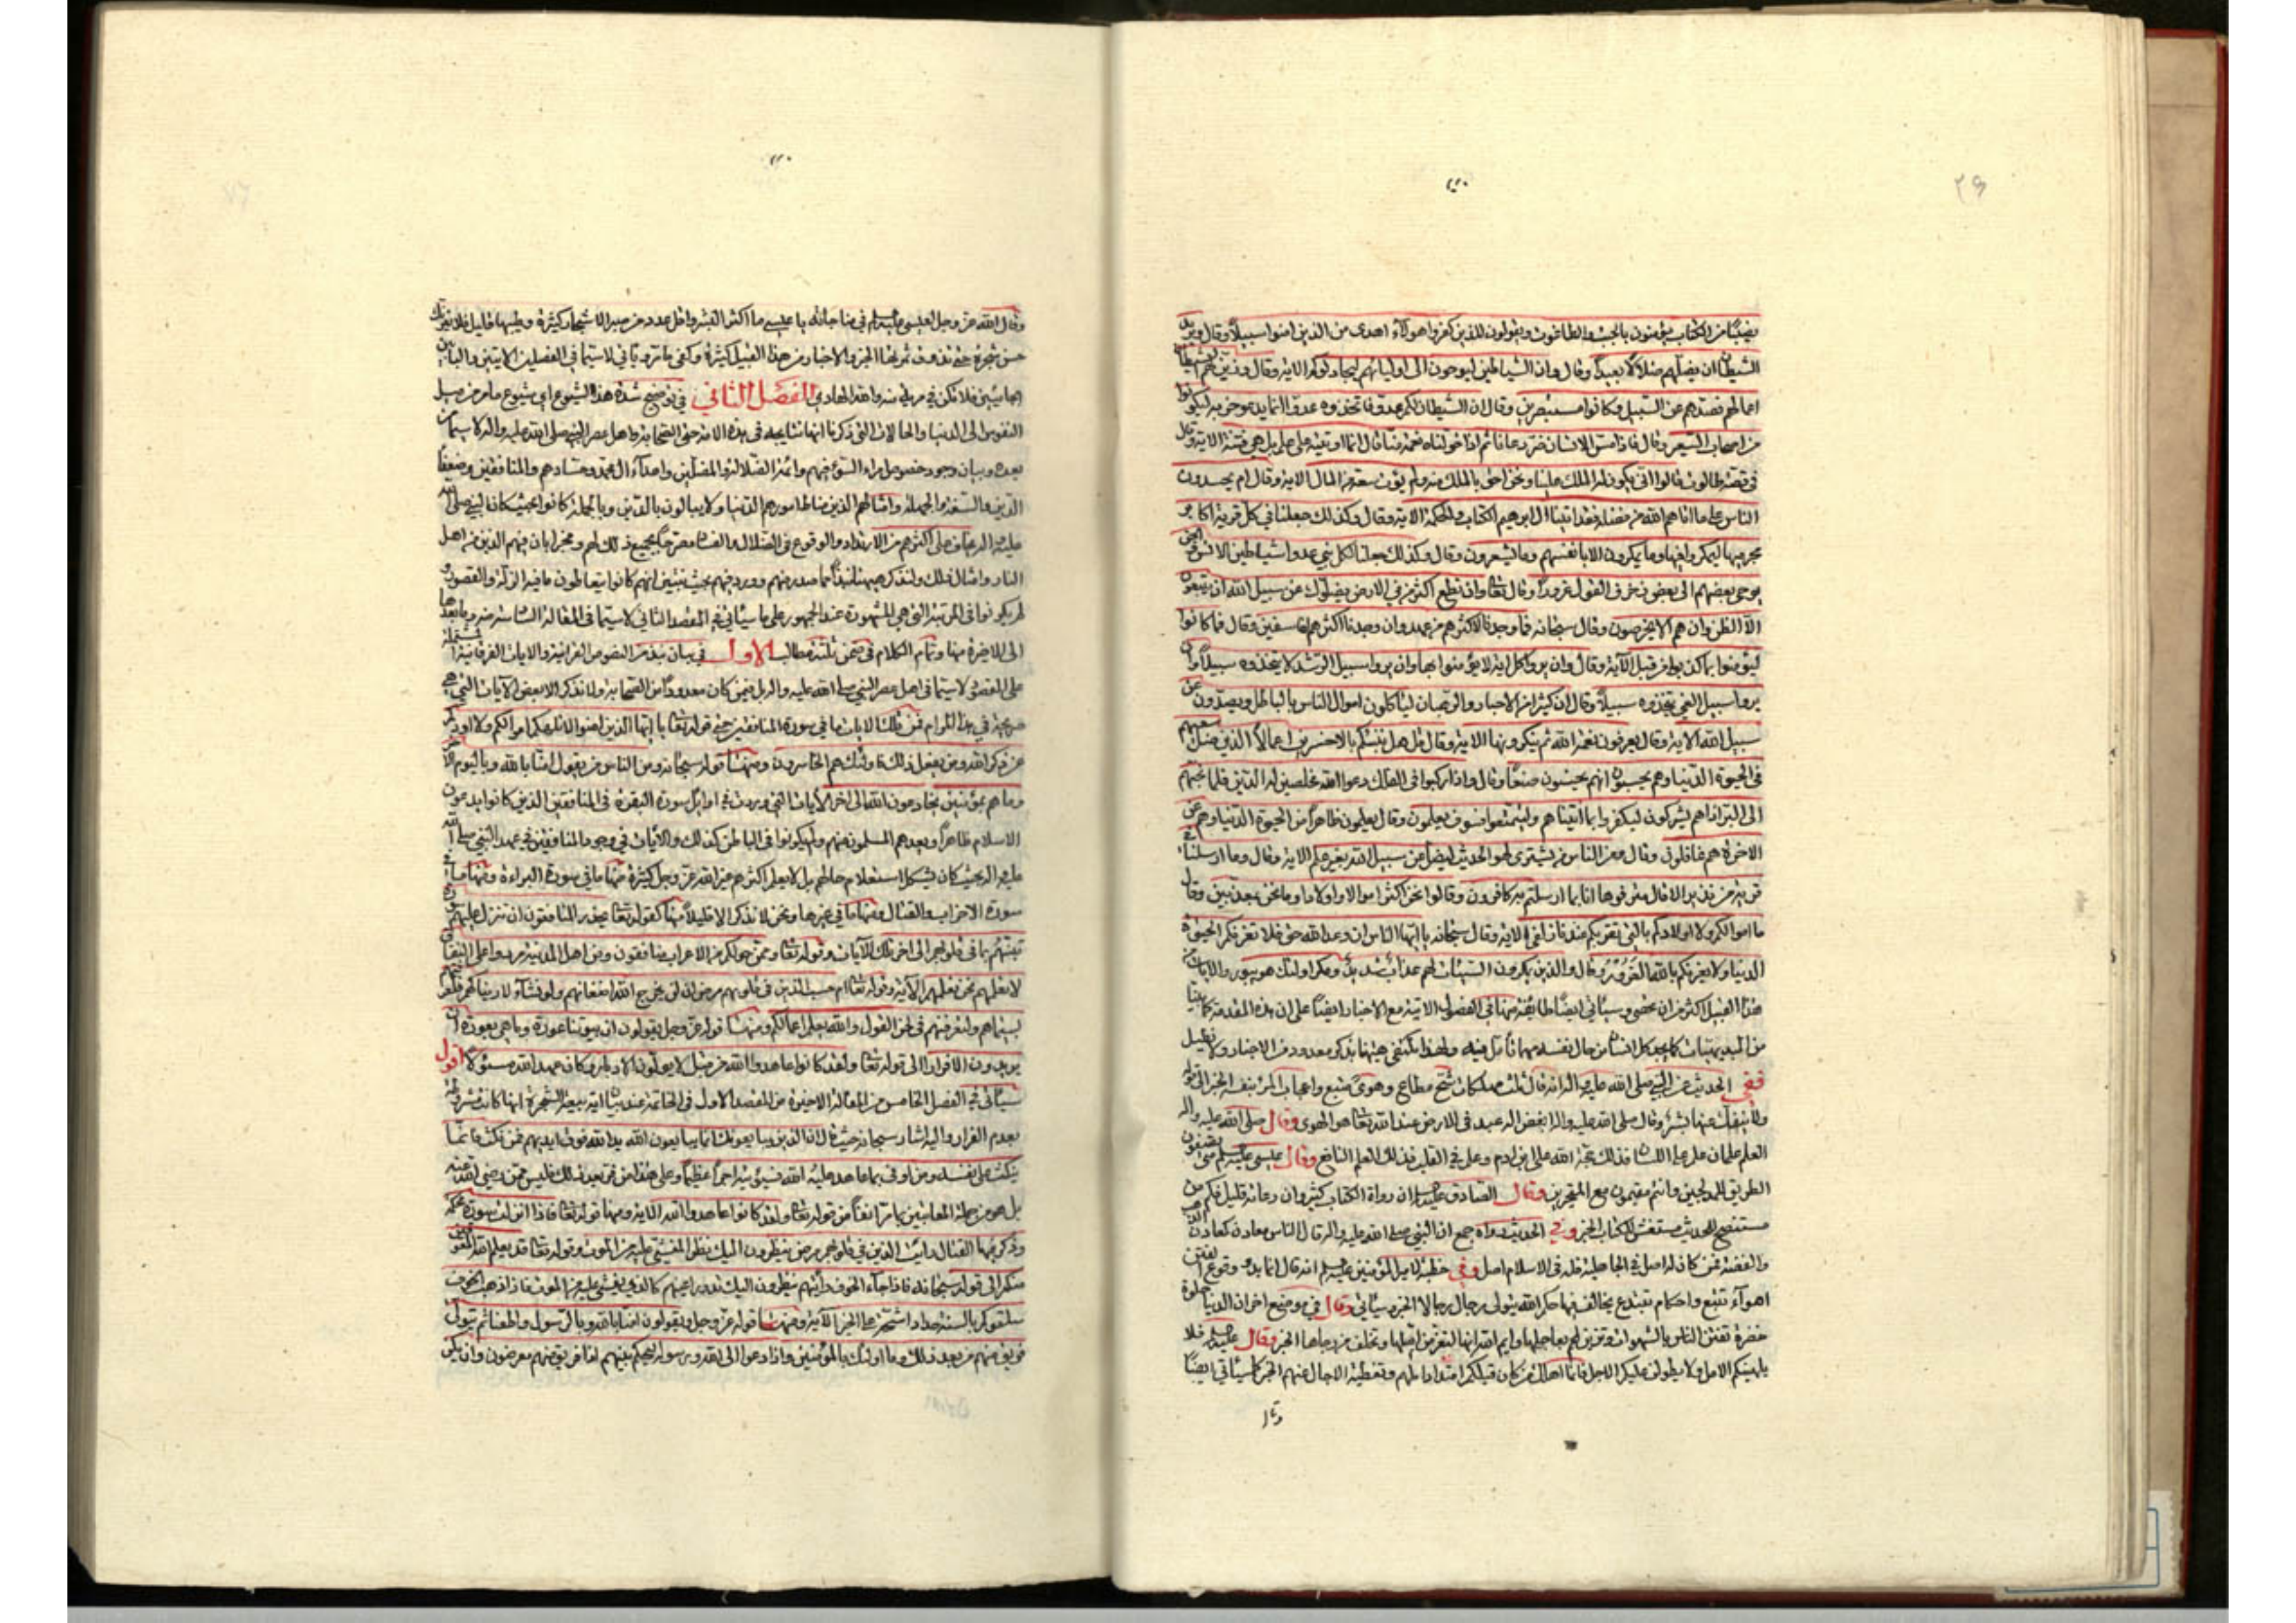 ٢٩
نصيبًا من الكتاب يؤمنون بالجبت والطاغوت ويقولون للذين كفروا هؤلاء اهدى من الذين امنوا سبيلًا وقال ويريد
الشيطان ان يضلهم ضلالًا بعيدًا وقال وان الشياطين ليوحون الى اوليائهم ليجادلوكم الاية وقال وزين لهم الشيطان
اعمالهم فصدهم عن السبيل وكانوا مستبصرين وقال ان الشيطان لكم عدو فاتخذوه عدوا انما يدعو حزبه ليكونوا
من اصحاب السعير وقال فاذا مس الانسان ضر دعانا ثم اذا خولناه نعمة منا قال انما اوتيته على علم بل هي فتنة الاية وقال
في قصة طالوت قالوا انى يكون له الملك علينا ونحن احق بالملك منه ولم يؤت سعة من المال الاية وقال ام يحسدون
الناس على ما اتاهم الله من فضله فقد اتينا ال ابرهيم الكتاب والحكمة الاية وقال وكذلك جعلنا في كل قرية اكابر
مجرميها ليمكروا فيها وما يمكرون الا بانفسهم وما يشعرون وقال وكذلك جعلنا لكل نبي عدوا شياطين الانس والجن
يوحى بعضهم الى بعض زخرف القول غرورًا وقال تعا وان تطع اكثر من في الارض يضلوك عن سبيل الله ان يتبعون
الا الظن وان هم الا يخرصون وقال سبحانه فما وجدنا لاكثرهم من عهد وان وجدنا اكثرهم لفاسقين وقال فما كانوا
ليؤمنوا بما كذبوا من قبل الاية وقال وان يروا كل اية لا يؤمنوا بها وان يروا سبيل الرشد لا يتخذوه سبيلًا وان
يروا سبيل الغي يتخذوه سبيلًا وقال ان كثيرا من الاحبار والرهبان لياكلون اموال الناس بالباطل ويصدون عن
سبيل الله الاية وقال يعرفون نعمة الله ثم ينكرونها الاية وقال قل هل ننبئكم بالاخسرين اعمالًا الذين ضل سعيهم
في الحيوة الدنيا وهم يحسبون انهم يحسنون صنعًا وقال واذا ركبوا في الفلك دعوا الله مخلصين له الدين فلما نجيهم
الى البر اذا هم يشركون ليكفروا بما اتيناهم وليتمتعوا فسوف يعلمون وقال يعلمون ظاهرًا من الحيوة الدنيا وهم عن
الاخرة هم غافلون وقال ومن الناس من يشترى لهو الحديث ليضل عن سبيل الله بغير علم الاية وقال وما ارسلنا في
قرية من نذير الا قال مترفوها انا بما ارسلتم به كافرون وقالوا نحن اكثر اموالا واولادا وما نحن بمعذبين وقال
ما اموالكم ولا اولادكم بالتي تقربكم عندنا زلفى الاية وقال سبحانه يا ايها الناس ان وعد الله حق فلا تغرنكم الحيوة
الدنيا ولا يغرنكم بالله الغرور وقال والذين يمكرون السيئات لهم عذاب شديد ومكر اولئك هو يبور والايات من
هذا القبيل اكثر من ان تحصى وسيأتي ايضًا طائفة منها في الفصول الاتية مع الاخبار ايضًا على ان هذه المقدمة كادت
من البديهيات كل انسان من حال نفسه مهما تأمل فيه ولهذا نكتفي هيهنا بذكر معدود من الاخبار ولا نطيل
ففي الحديث عن النبي صلى الله عليه واله انه قال ثلث مهلكات شح مطاع وهوى متبع واعجاب المرء بنفسه الخبر
وقال صلى الله عليه واله ابغض اله عبد في الارض عند الله تعا هو الهوى وقال صلى الله عليه واله
العلم علمان علم على اللسان فذلك حجة الله على ابن ادم وعلم في القلب فذلك العلم النافع وقال عيسى عليه السلم متى تصفون
الطريق للمدلجين وانتم مقيمون مع المتحيرين وقال الصادق عليه السلم ان رواة الكتاب كثير وان رعاته قليل فكم من
مستنصح للحديث مستغش للكتاب الخبر وفي الحديث رواه جمع ان النبي صلى الله عليه واله قال الناس معادن كمعادن الذهب
والفضة فمن كان له اصل في الجاهلية فله في الاسلام اصل وفي خطبة لامير المؤمنين عليه السلم انه قال انما بدء وقوع الفتن
اهواء تتبع واحكام تبتدع يخالف فيها حكم الله يتولى رجال رجالا الخبر وسيأتي وقال في موضع اخر ان الدنيا حلوة
خضرة تفتن الناس بالشهوات وتزين لهم بعاجلها وايم الله انها لتغر من املها وتخلف من رجاها الخبر وقال عليه السلم فلا
يلهينكم الامل ولا يطولن عليكم الاجل فانما اهلك من كان قبلكم امتداد املهم وتغطية الاجال عنهم الخبر كما سيأتي ايضًا
وقال
وقال الله عز وجل لعيسى عليه السلم في مناجاته يا عيسى ما اكثر البشر واقل عدد من صبر الاشجار كثيرة وطيبها قليل فلا يغرنك
حسن شجرة حتى تذوق ثمرتها الخبر والاخبار من هذا القبيل كثيرة وكفى ما مر ويأتي لا سيما في الفصلين الاتيين والبابين
فلا تكن في مرية منه والله الهادي الفصل الثاني في توضيح شدة هذا الشيوع اي شيوع ما مر من ميل
النفوس الى الدنيا والحالات التي ذكرنا انها شايعة في هذه الامة حتى الصحابة واهل عصر النبي صلى الله عليه واله لا سيما من
بعده وبيان وجود خصوص امراء السوء فيهم وائمة الضلالة والمضلين واعداء ال محمد وحسادهم والمنافقين وضعفاء
الدين والسفهة والجهلة وامثالهم الذين ضاطا امورهم الدنيا ولا يبالون بالدين وبالجملة كانوا بحيث كان النبي صلى الله
عليه واله يخاف على اكثرهم من الارتداد والوقوع في الضلال والفساد مصرحًا بجميع ذلك لهم ومخبرا بان فيهم الذين من اهل
النار وامثال ذلك ولنذكر هيهنا نبذًا مما صدر منهم وورد فيهم بحيث يتبين انهم كانوا يتعاطون ما فيه الزلة والقصور و
لم يكونوا في المرتبة التي هي المشهورة عند الجمهور على ما سيأتي في المقصد الثاني لا سيما في المقالة السادسة منه وما بعدها
الى الاخيرة منها وتمام الكلام في ضمن ثلثة مطالب الاول في بيان نبذ من النصوص القرانية والايات الفرقانية المشتملة
على المقصود لا سيما في اهل عصر النبي صلى الله عليه واله بل فيمن كان معدودًا من الصحابة ولا نذكر الا بعض الايات التي هي
صريحة في هذا المرام فمن تلك الايات ما في سورة المنافقين حتى قوله تعا يا ايها الذين امنوا لا تلهكم اموالكم ولا اولادكم
عن ذكر الله ومن يفعل ذلك فاولئك هم الخاسرون ومنها قوله سبحانه ومن الناس من يقول امنا بالله وباليوم الاخر
وما هم بمؤمنين يخادعون الله الى اخر الايات التي وردت في اوايل سورة البقرة في المنافقين الذين كانوا يدعون
الاسلام ظاهرًا ويعدهم المسلمون منهم ولم يكونوا في الباطن كذلك والايات في وجود المنافقين في عهد النبي صلى الله
عليه واله بحيث كان يشكل استعلام حالهم بل لا يعلم اكثرهم غير الله عز وجل كثيرة منها ما في سورة البراءة ومنها ما في
سورة الاحزاب والقتال ومنها ما في غيرها ونحن لا نذكر الا قليلًا منها كقوله تعا يحذر المنافقون ان تنزل عليهم سورة
تنبئهم بما في قلوبهم الى اخر تلك الايات وقوله تعا وممن حولكم من الاعراب منافقون ومن اهل المدينة مردوا على النفاق
لا تعلمهم نحن نعلمهم الاية وقوله تعا ام حسب الذين في قلوبهم مرض ان لن يخرج الله اضغانهم ولو نشاء لاريناكهم فلعرفتهم
بسيماهم ولتعرفنهم في لحن القول والله يعلم اعمالكم ومنها قوله عز وجل يقولون ان بيوتنا عورة وما هي بعورة ان
يريدون الا فرارا الى قوله تعا ولقد كانوا عاهدوا الله من قبل لا يولون الادبار وكان عهد الله مسئولًا اقول
سيأتي في الفصل الخامس من المقالة الاخيرة من المقصد الاول في الخاتمة عند بيان اية بيعة الشجرة انها كانت مشروطة
بعدم الفرار واليه اشار سبحانه حيث قال ان الذين يبايعونك انما يبايعون الله يد الله فوق ايديهم فمن نكث فانما
ينكث على نفسه ومن اوفى بما عاهد عليه الله فسيؤتيه اجرًا عظيمًا وعلى هذا من فر بعد ذلك فليس ممن رضى الله عنه
بل هو من جملة المعاتبين بما مر انفًا من قوله تعا ولقد كانوا عاهدوا الله الاية ومنها قوله تعا فاذا انزلت سورة محكمة
وذكر فيها القتال رايت الذين في قلوبهم مرض ينظرون اليك نظر المغشي عليه من الموت وقوله تعا قد يعلم الله المعوقين
منكم الى قوله سبحانه فاذا جاء الخوف رأيتهم ينظرون اليك تدور اعينهم كالذي يغشى عليه من الموت فاذا ذهب الخوف
سلقوكم بالسنة حداد اشحة على الخير الاية ومنها قوله عز وجل ويقولون امنا بالله وبالرسول واطعنا ثم يتولى
فريق منهم من بعد ذلك وما اولئك بالمؤمنين واذا دعوا الى الله ورسوله ليحكم بينهم اذا فريق منهم معرضون وان يكن